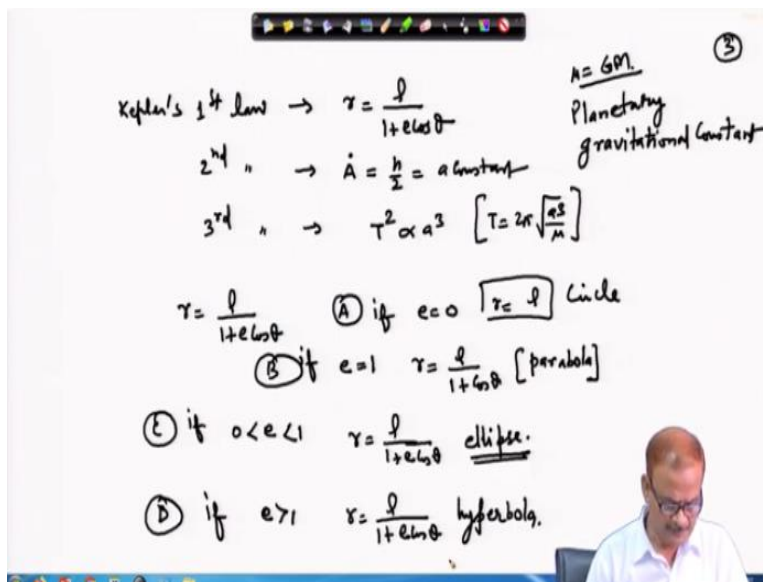 ③
μ = GM.
Planetary
gravitational Constant
Kepler's 1st law → r = l / (1 + e cos θ)
2nd " → Ȧ = h/2 = a constant
3rd " → T² ∝ a³ [T = 2π √(a³/μ)]
r = l / (1 + e cos θ) Ⓐ if e = 0 r = l Circle
Ⓑ if e = 1 r = l / (1 + cos θ) [parabola]
Ⓒ if 0 < e < 1 r = l / (1 + e cos θ) ellipse.
Ⓓ if e > 1 r = l / (1 + e cos θ) hyperbola.